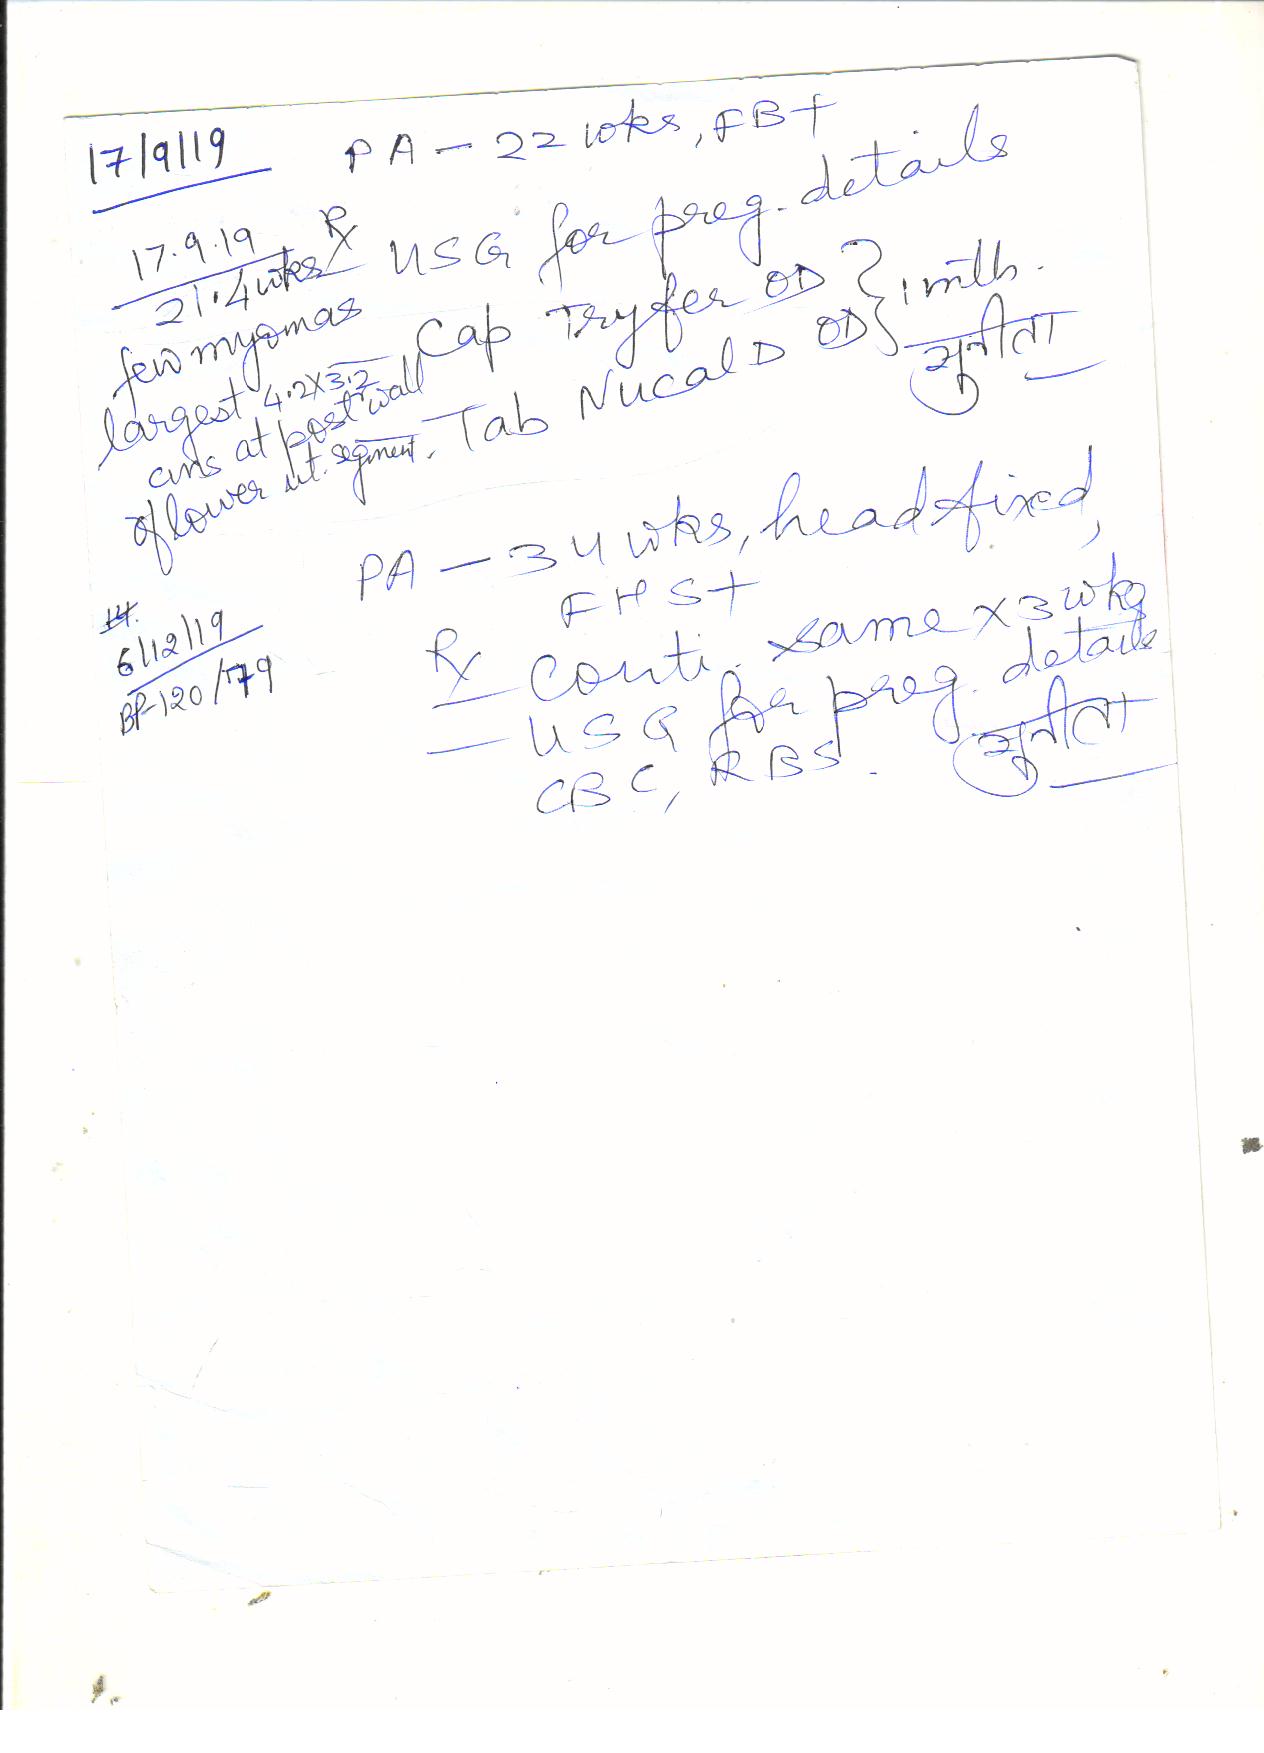 17/9/19
PA - 22 wks, FB+
17.9.19
21.4 wks
few myomas
largest 4.2x3.2
cms at post wall
of lower ut. segment.
Rx USG for preg. details
Cap Tryfer OD } 1 mth.
Tab Nucal D OD
सुनीता
6/12/19
BP-120/79
PA - 34 wks, head fixed,
FHS+
Rx Conti. same x 3 wks
- USG for preg. details
CBC, RBS.
सुनीता